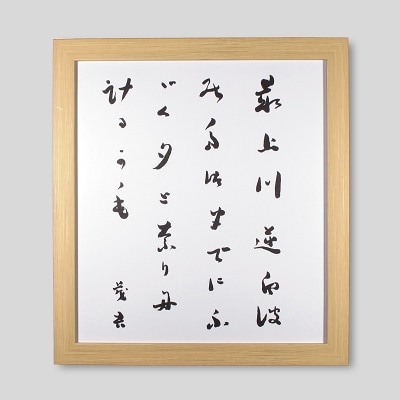 最上川逆白波
のたつまでにふ
ぶく夕と奈り丹
計るかも
茂吉